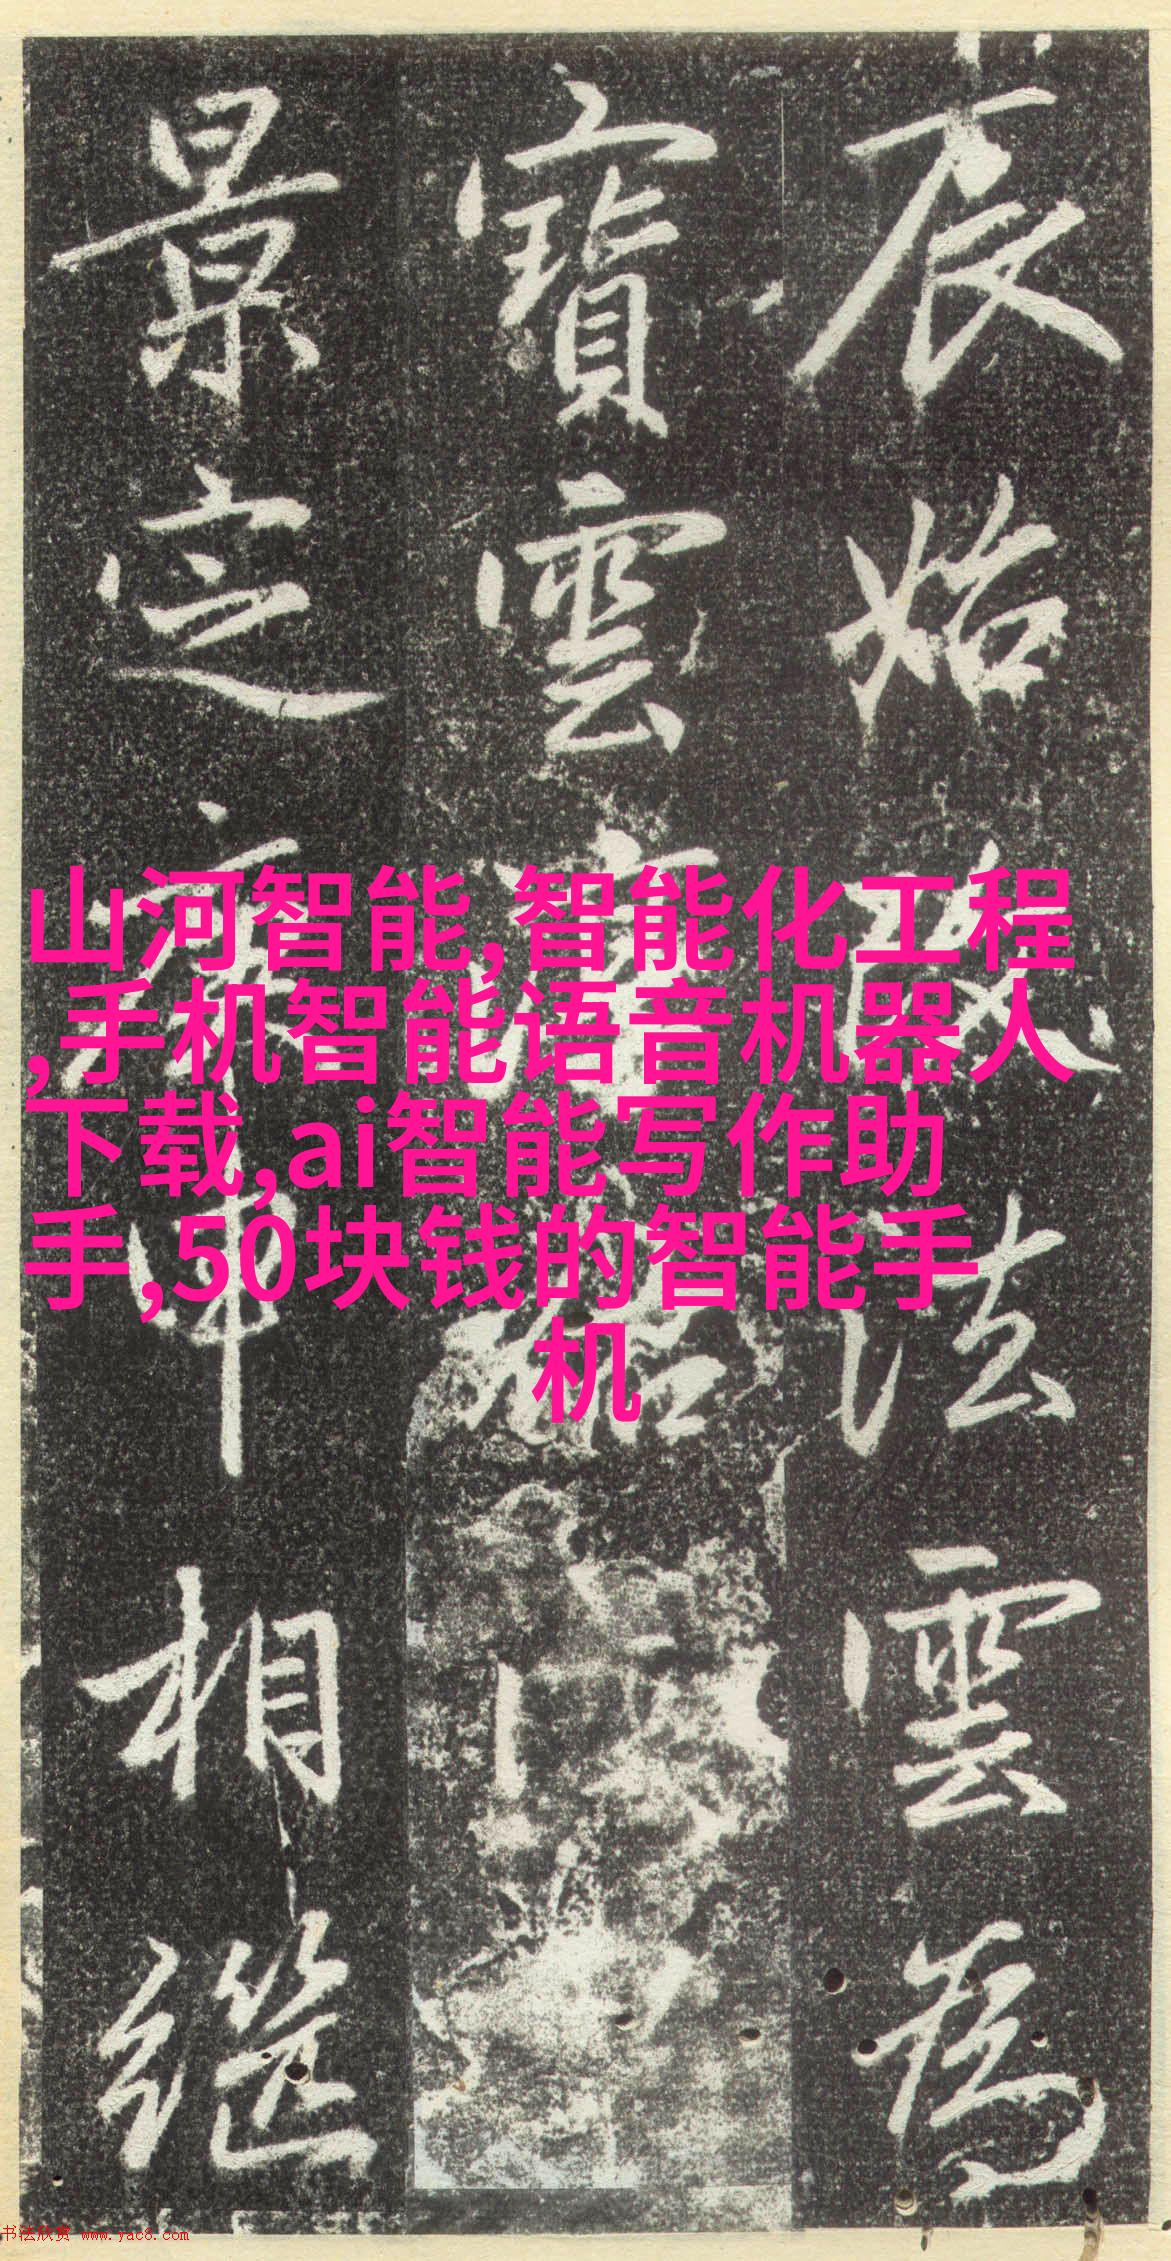 辰始改法雲為
寶雲寶
景定庚申相繼
山河智能,智能化工程
,手机智能语音机器人
下载,ai智能写作助
手,50块钱的智能手
机
书法欣赏 www.yac8.com